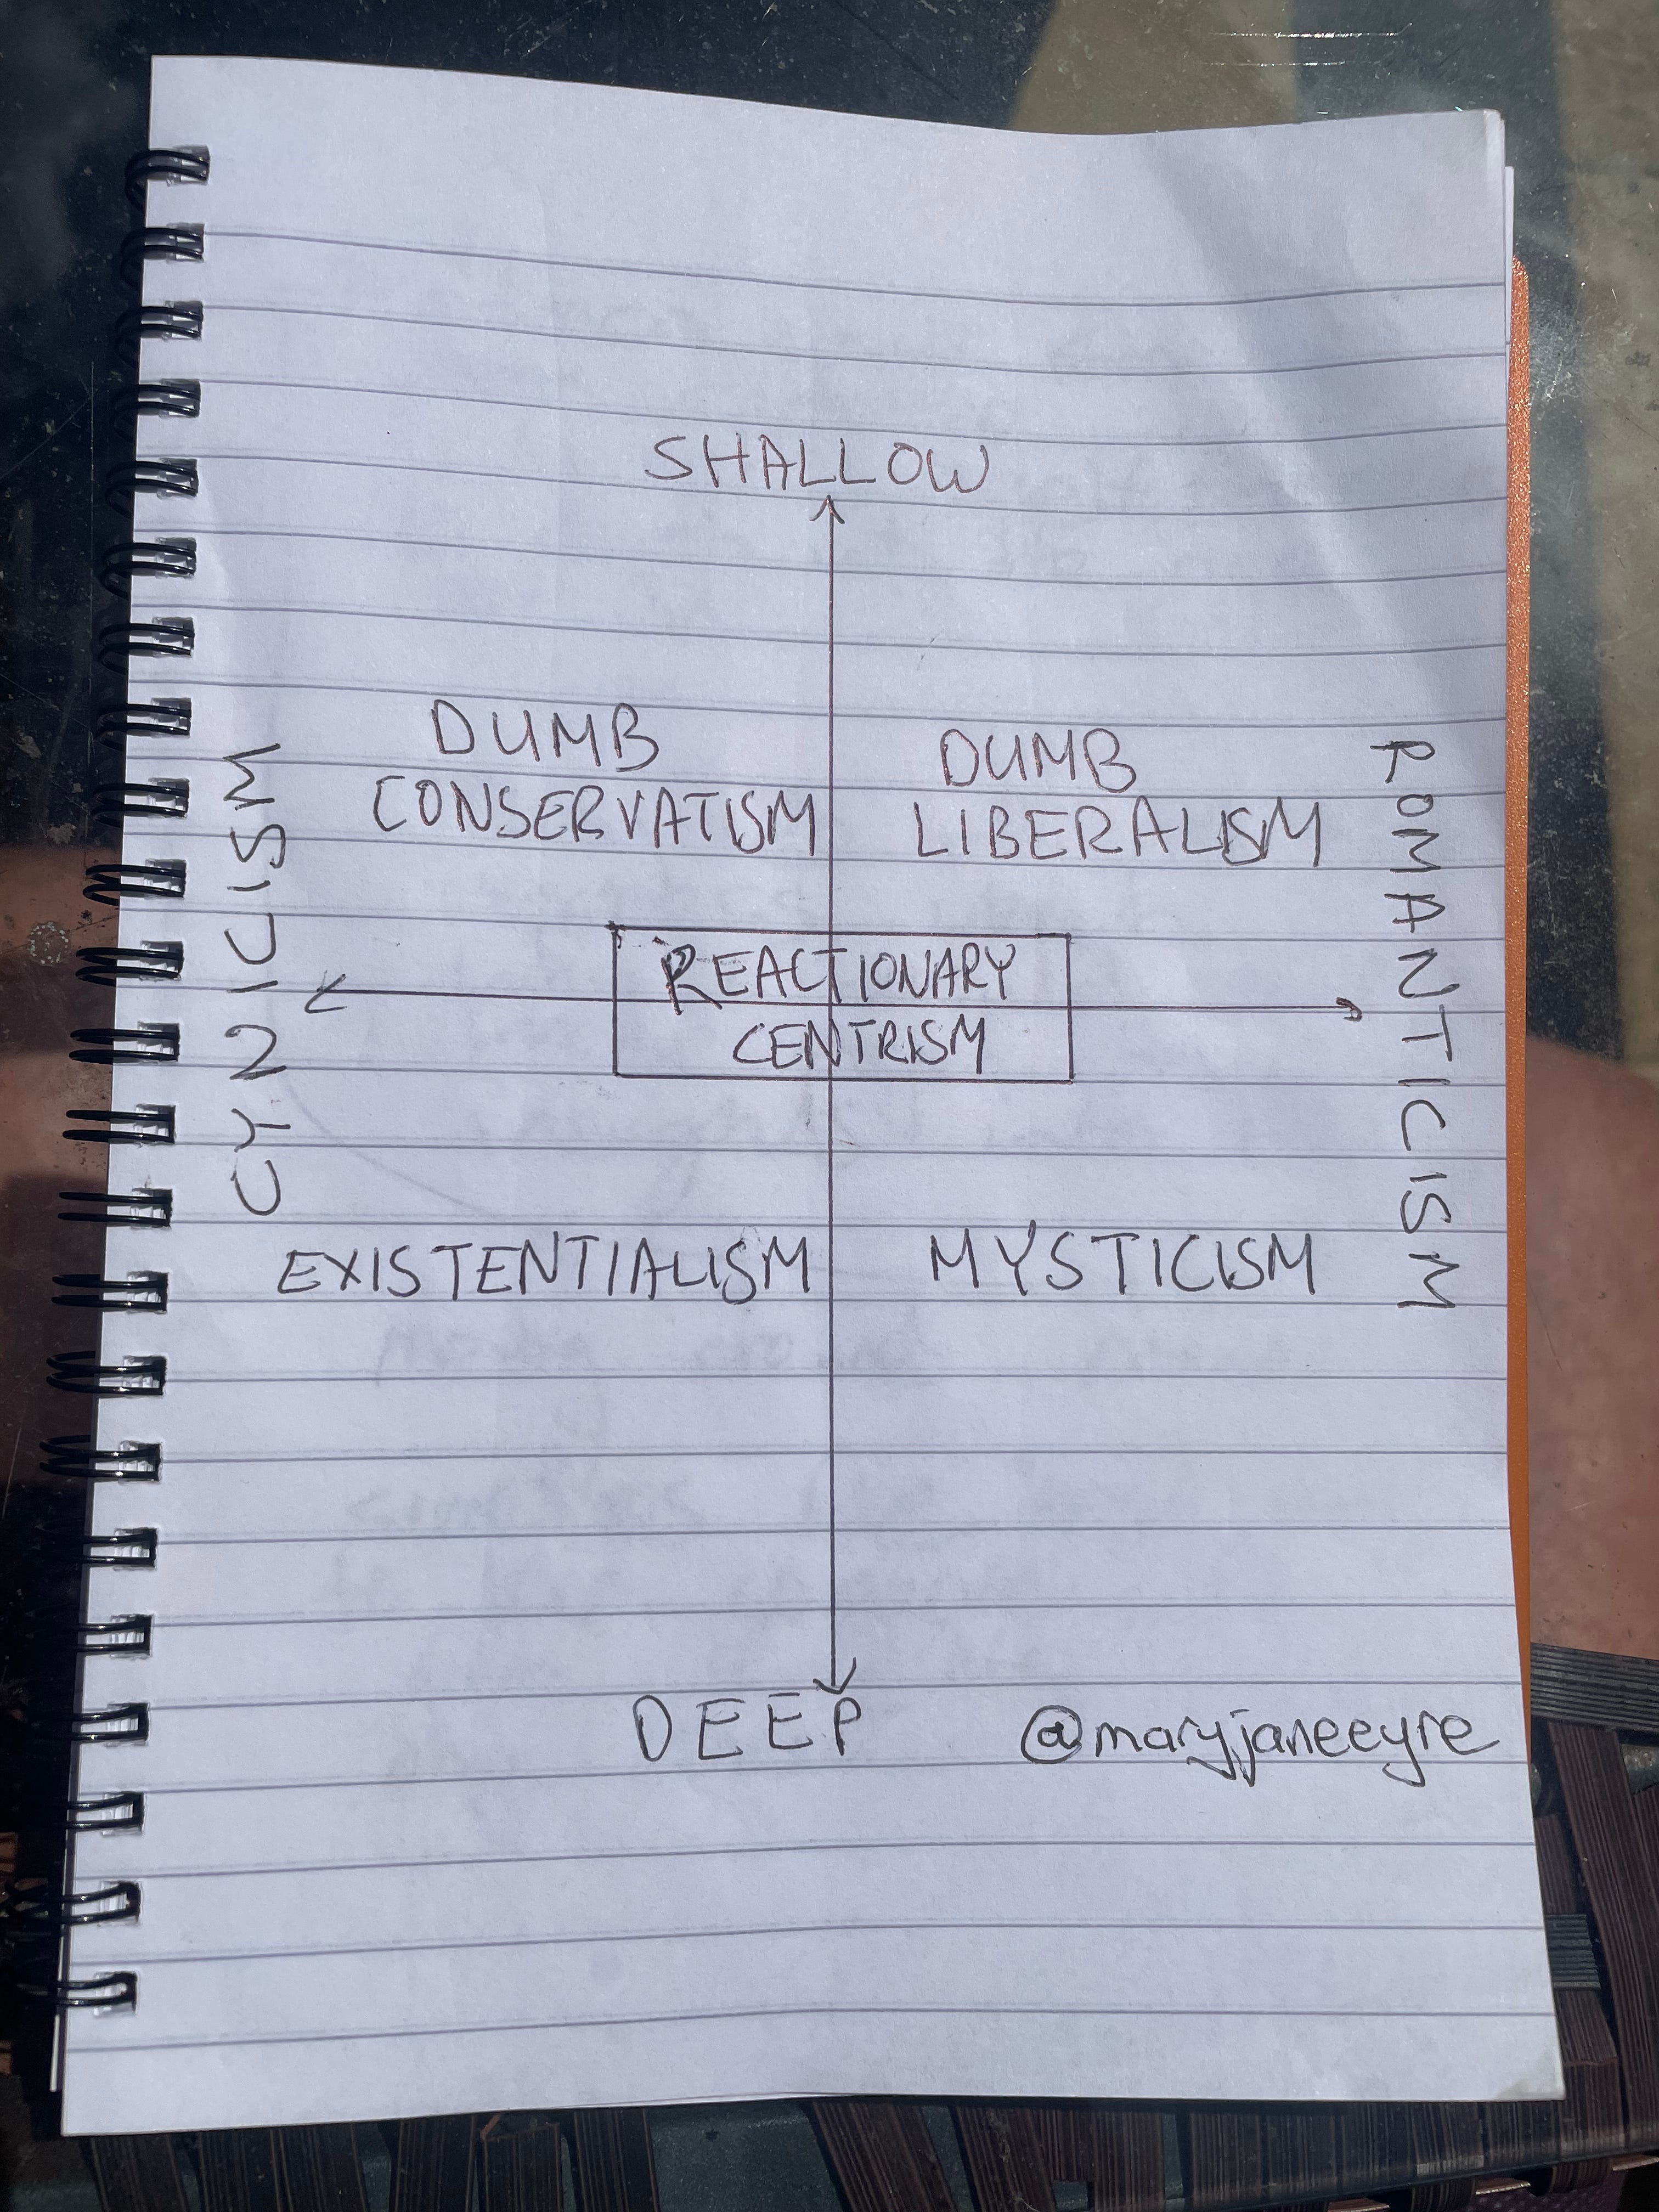 SHALLOW
DUMB
CONSERVATISM
DUMB
LIBERALISM
CYNICISM
REACTIONARY
CENTRISM
ROMANTICISM
EXISTENTIALISM
MYSTICISM
DEEP
@maryjaneeyre